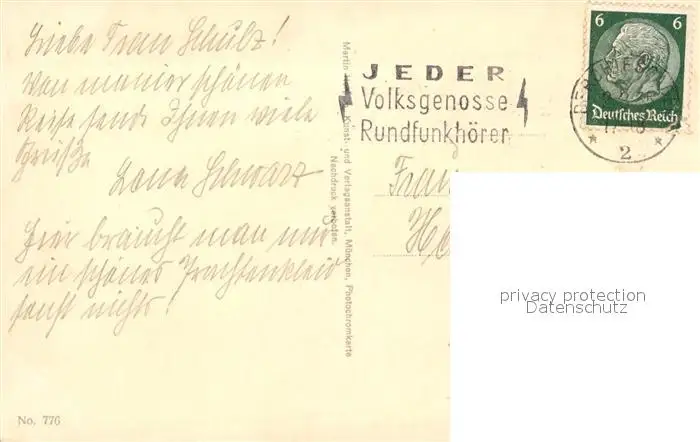 Liebe Frau Schulz!
Von meiner schönen
Reise sende Ihnen viele
Grüße
Lona Schwarz
Hier braucht man nur
ein schönes Trachtenkleid
sonst nichts!
No. 776
Martin Kunst- und Verlagsanstalt, München, Photochromkarte
Nachdruck verboten.
JEDER
Volksgenosse
Rundfunkhörer
6 6
Deutsches Reich
2
Frau
privacy protection
Datenschutz